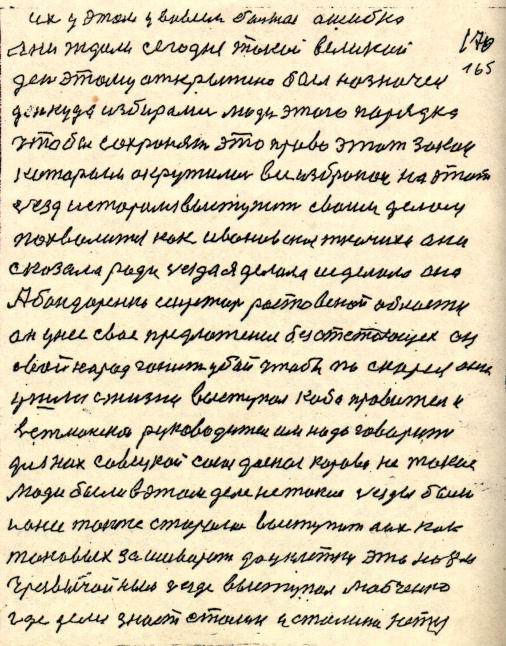 их у этом увовили болшая ошибка
Они ждали сегодня такой великой
170
165
ден этому открытию был назначен
ден куда избирали люди этого порядка
чтобы сохранят это право этот закон
которыи окрутили вси изброное на этот
сезд истораля выступит своим делом
похвалится как ивановская ткачиха она
сказала ради сезда я делала и сделала она
А Бондаренко секретар ростовской области
он унес свое предложения безотстающех он
свой народ гонит убой чтобы по скорея они
ушли с жизни выступал каба правител и
руководител им надо говорит
для нах совецкой союз доеная корова не такое
люди были в этом деле не такие сезды были
и они тоже старали выступит а их как
таковых зашивают до клетки это на всю
чрезвычайныю сезде выступал любченко
где дели знает сталин и сталина нету